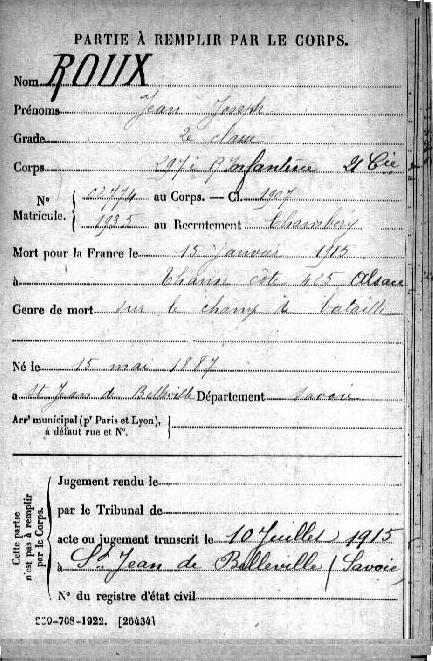 PARTIE À REMPLIR PAR LE CORPS.
Nom ROUX
Prénoms Jean Joseph
Grade 2e classe
Corps 297e R Infanterie 21 Cie
N° 02774 au Corps. — Cl. 1907
Matricule. 1935 au Recrutement Chambéry
Mort pour la France le 15 janvier 1915
à Thann côte 425 Alsace
Genre de mort sur le champ de bataille
Né le 15 mai 1887
à St Jean de Belleville Département Savoie
Arrt municipal (pr Paris et Lyon),
à défaut rue et N°.
Cette partie
n'est pas à remplir
par le Corps.
Jugement rendu le
par le Tribunal de
acte ou jugement transcrit le 10 Juillet 1915
à St Jean de Belleville (Savoie)
N° du registre d'état civil
-708-1922. [26434]